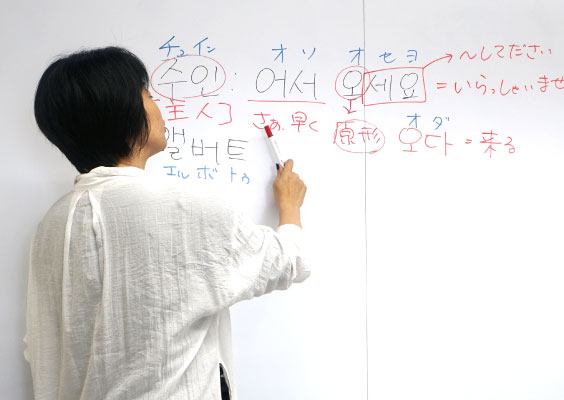 チュイン オソ オセヨ →〜してください
주인: 어서 오세요 =いらっしゃいませ
[主人] さあ、早く 原形 オダ 오다=来る
앨버트
エルボトゥ